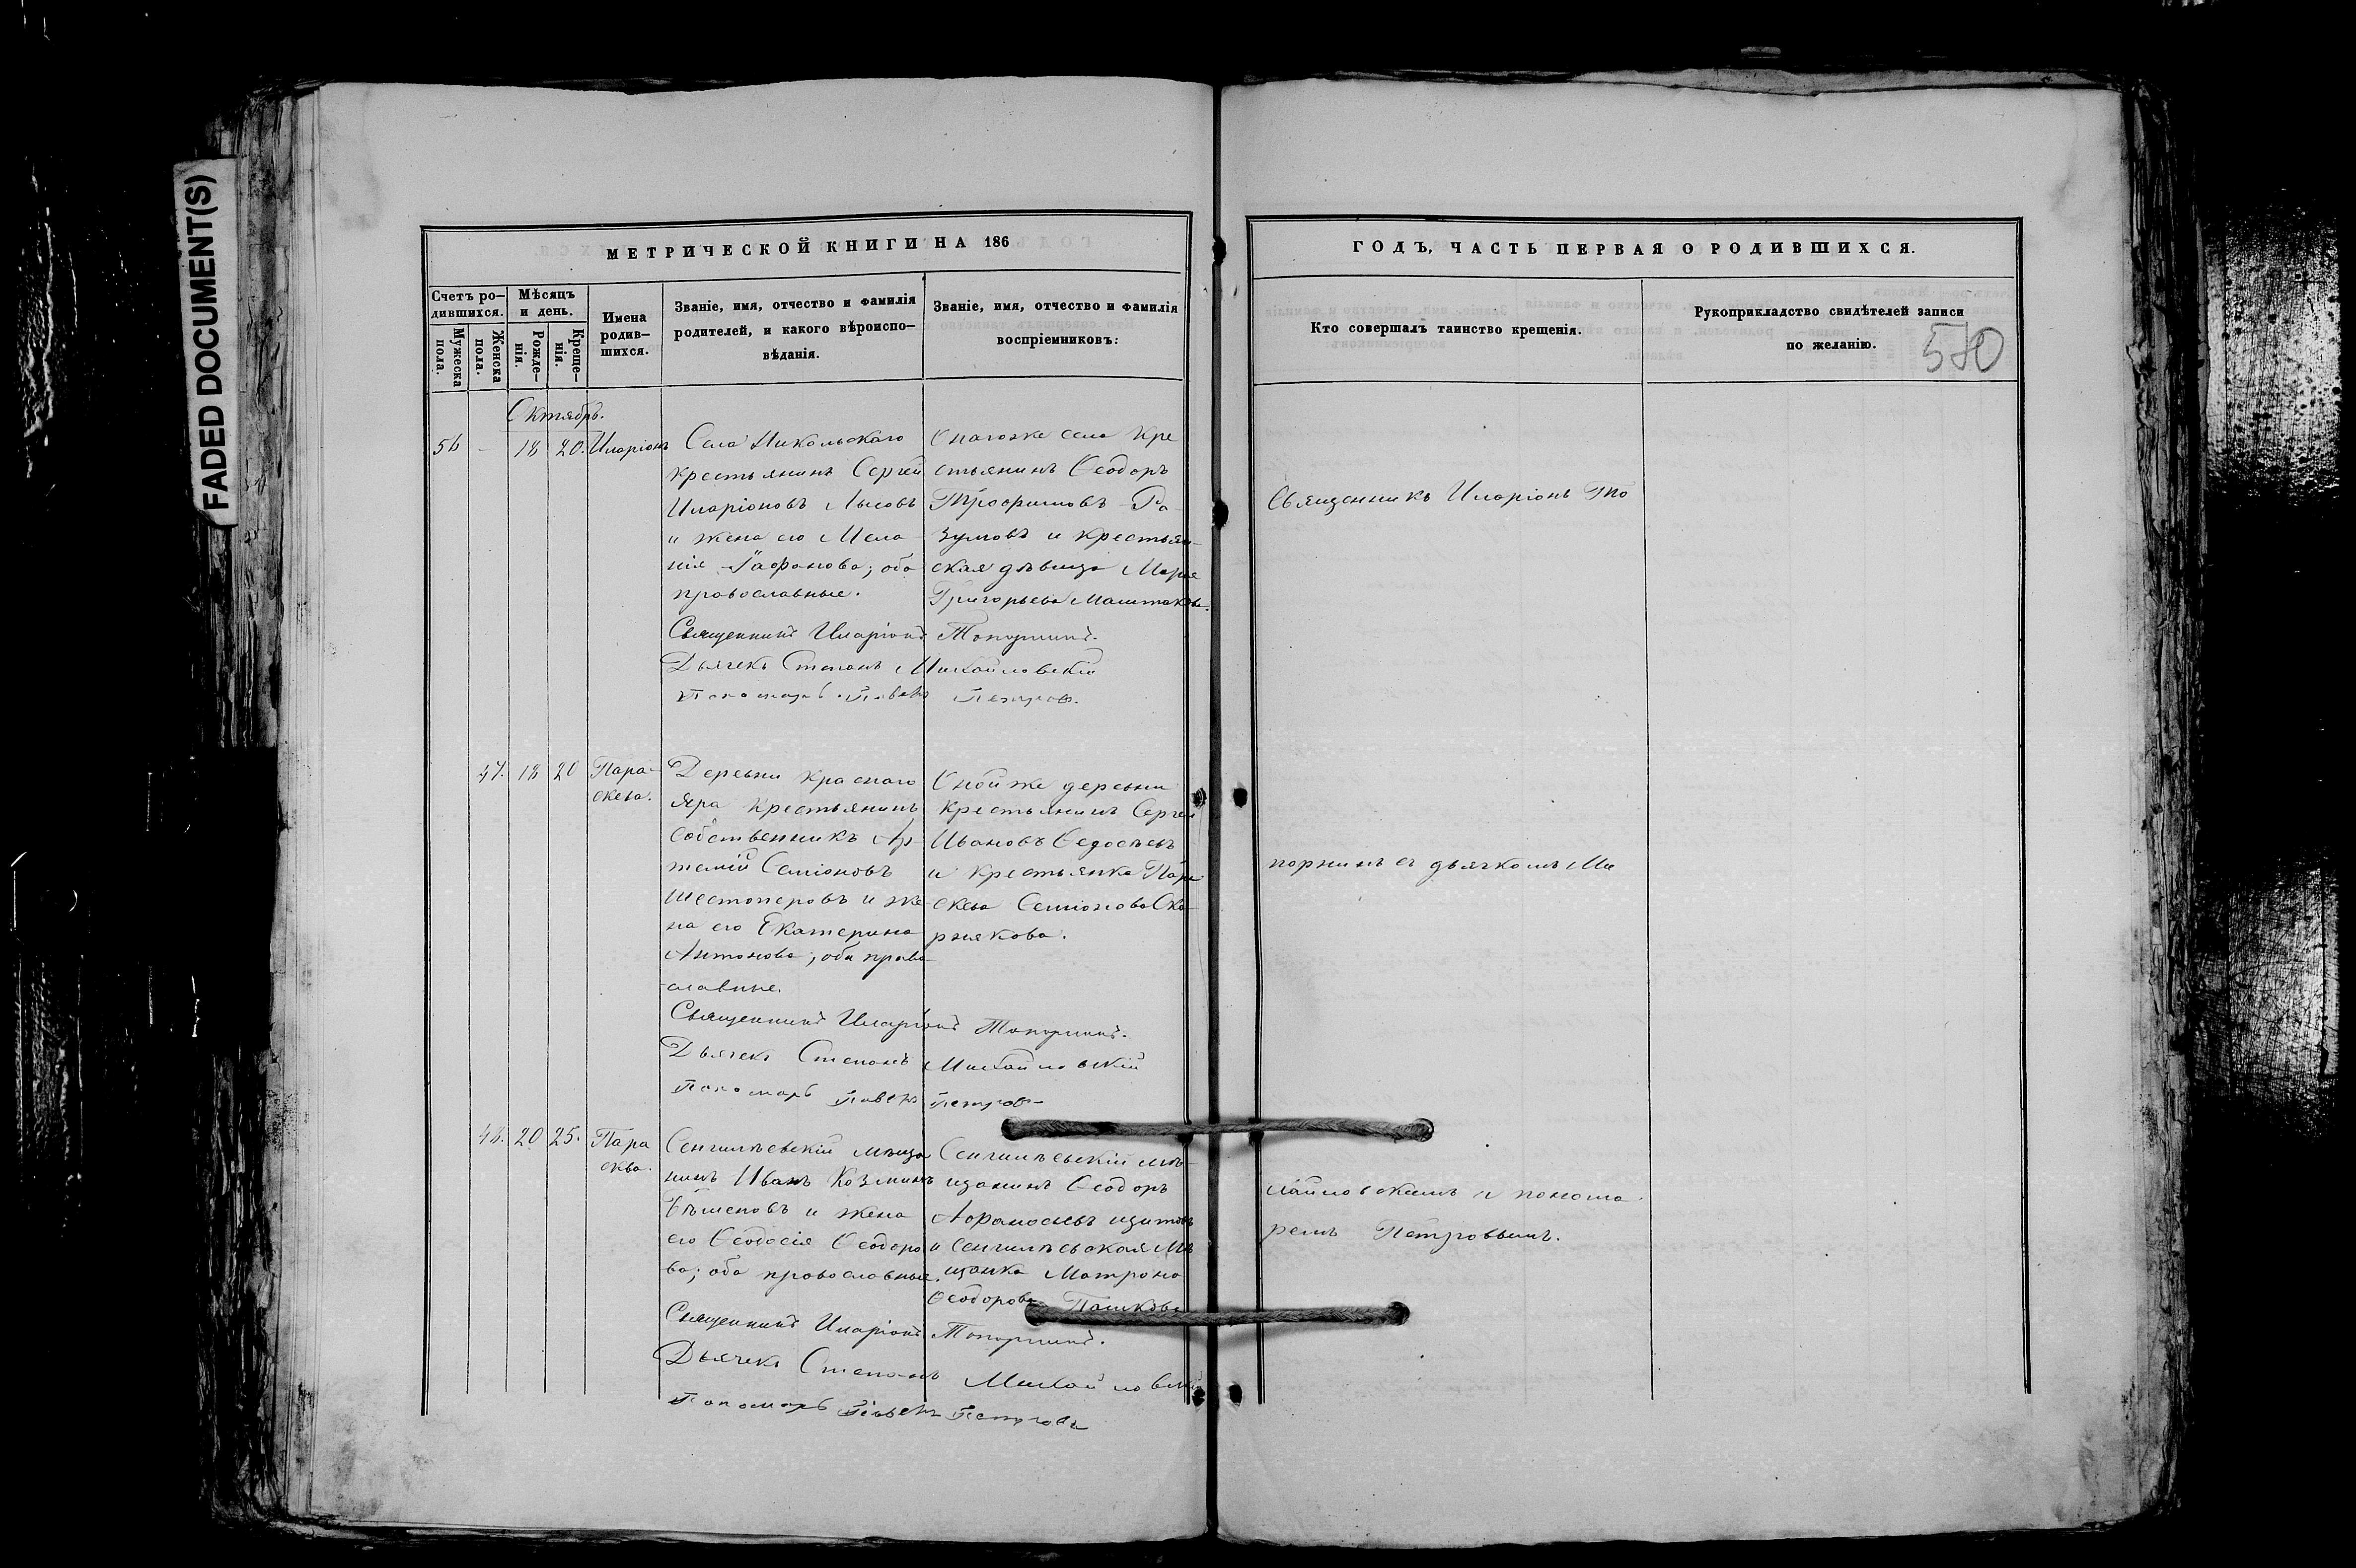 FADED DOCUMENT(S)
МЕТРИЧЕСКОЙ КНИГИ НА 186
Счетъ ро-
дившихся.
Мужеска
пола.
Женска
пола.
Мѣсяцъ
и день.
Рожде-
нія.
Креще-
нія.
Имена
родив-
шихся.
Званіе, имя, отчество и фамилія
родителей, и какого вѣроиспо-
вѣданія.
Званіе, имя, отчество и фамилія
воспріемниковъ:
Октябрь.
56 - 18 20. Иларіонъ
Села Никольскаго
крестьянинъ Сергей
Иларіоновъ Лысовъ
и жена его Мела-
нія Агафонова; оба
православные.
Онагоже села кре
стьянинъ Ѳеодоръ
Трофимовъ Ра-
зумовъ и крестьян-
ская дѣвица Марья
Григорьева Маштакова.
Священникъ Иларіонъ Топорнинъ.
Дьячекъ Степанъ Михайловскій
Пономарь Павелъ Петровъ.
47. 18 20
Пара-
скева.
Деревни Краснаго
Яра крестьянинъ
собственникъ Ар-
темій Семіоновъ
Шестоперовъ и же-
на его Екатерина
Антонова; оба право-
славные.
Оной же деревни
крестьянинъ Сергей
Ивановъ Ѳедосѣевъ
и крестьянка Пара
скева Семіонова Ско-
рнякова.
Священникъ Иларіонъ Топорнинъ.
Дьячекъ Степанъ Михайловскій
Пономарь Павелъ Петровъ
48. 20 25.
Пара
скева.
Сенгилѣевскій мѣща
нинъ Иванъ Козминъ
и жена
его Ѳеодосія Ѳеодоро
ва; оба православные.
Сенгилѣевскій мѣ-
щанинъ Ѳеодоръ
Аѳанасьевъ
и Сенгилѣевская мѣ
щанка Матрона
Ѳеодорова Пашкова
Священникъ Иларіонъ Топорнинъ.
Дьячекъ Степанъ Михайловскій
Пономарь Павелъ Петровъ
ГОДЪ, ЧАСТЬ ПЕРВАЯ О РОДИВШИХСЯ.
Кто совершалъ таинство крещенія.
Рукоприкладство свидѣтелей записи
по желанію.
570
Священникъ Иларіонъ То
порнинъ съ дьячкомъ Ми
хайловскимъ и понома
ремъ Петровымъ.